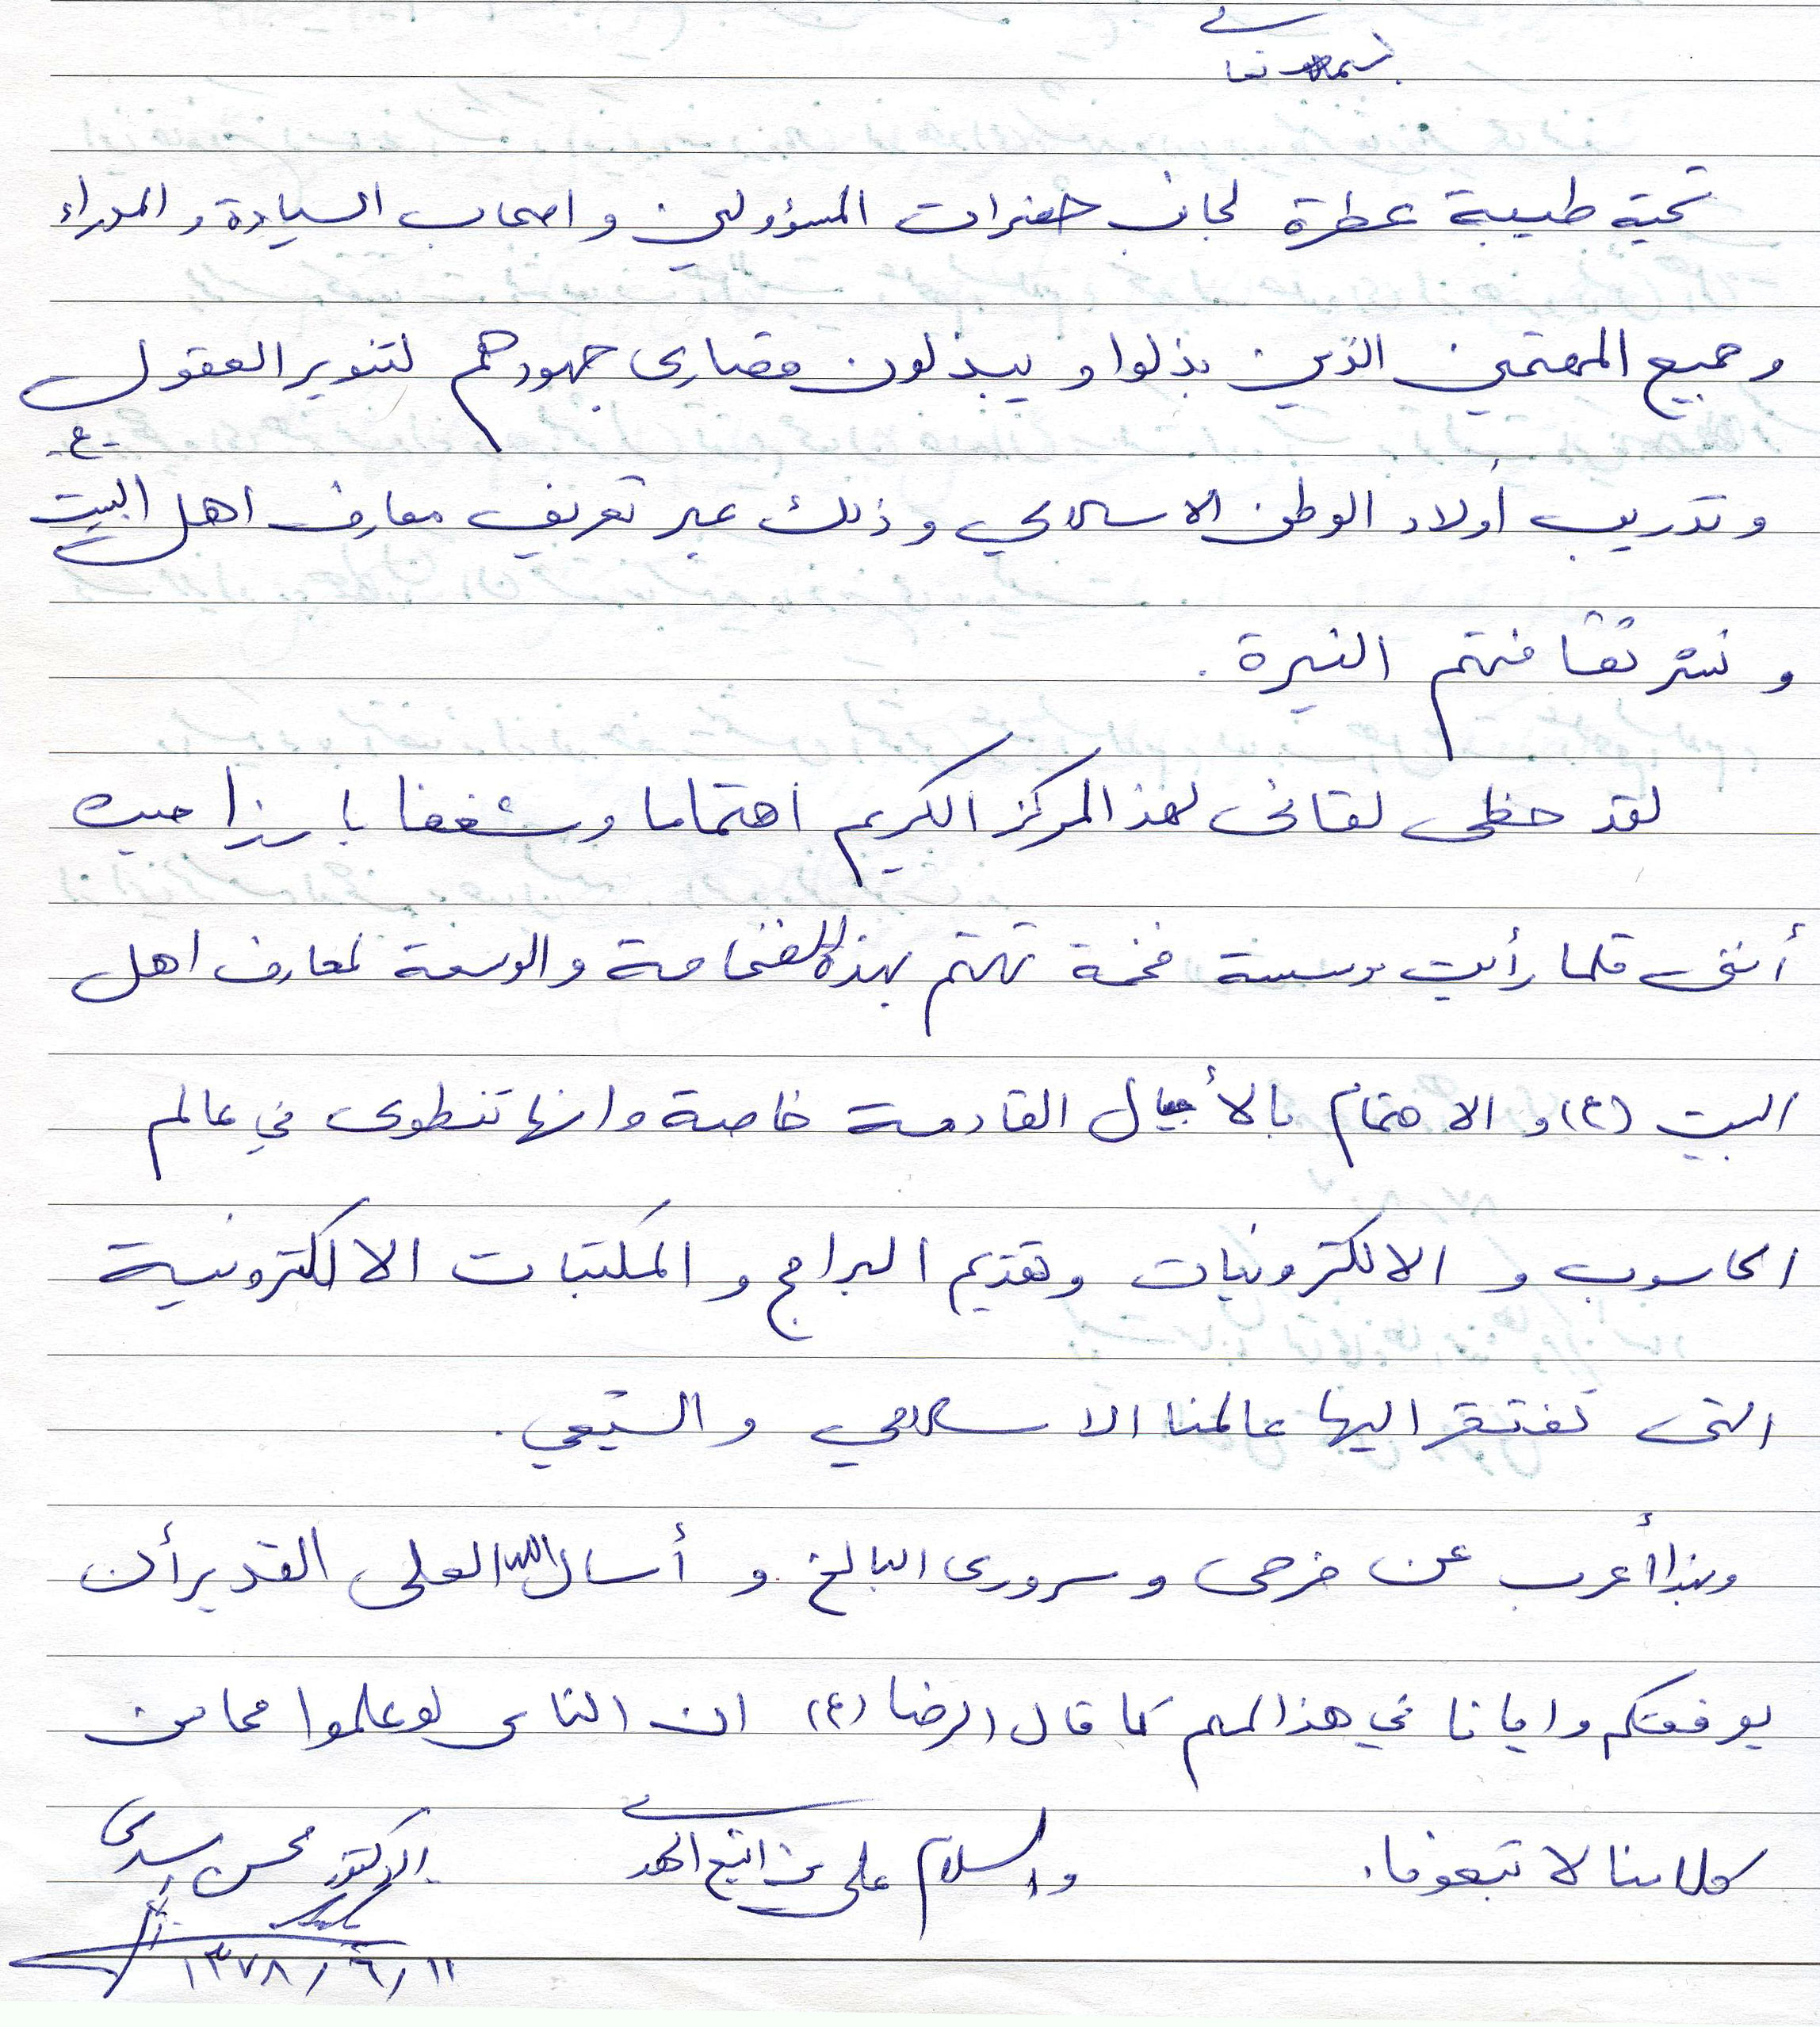 بسمه تعالى
تحية طيبة عطرة لجانب حضرات المسؤولين و اصحاب السيادة و المدراء
و جميع المهتمين الذين بذلوا و يبذلون قصارى جهودهم لتنوير العقول
و تدريب أولاد الوطن الاسلامي و ذلك عبر تعريف معارف اهل البيت ع
و نشر ثقافتهم النيرة .
لقد حظى لقائى لهذ المركز الكريم اهتماما و شغفا بارزا حيث
أننى قلما رأيت موسسة فخمة تهتم بهذه الفخامة والوسعة لمعارف اهل
البيت (ع) و الاهتمام بالأجيال القادمة خاصة وانها تنطوى في عالم
الحاسوب و الالكترونيات و تقديم البرامج و المكتبات الالكترونية
التى تفتقر اليها عالمنا الاسلامي و الشيعي .
وبهذا أعرب عن فرحى و سرورى البالغ و أسال الله العلى القدير أن
يوفقكم و ايانا في هذ المهم كما قال الرضا (ع) ان الناس لو علموا محاسن
كلامنا لاتبعونا.
و السلام على من اتبع الهدى
الدكتور محسن
١٣٧٨/٦/١١